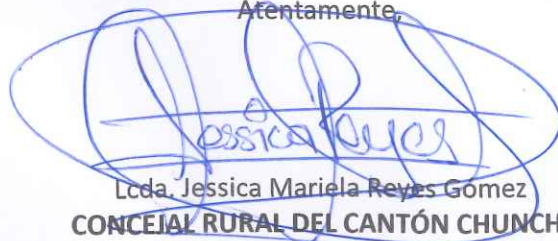 Atentamente,
Jessica Reyes
Lcda. Jessica Mariela Reyes Gómez
CONCEJAL RURAL DEL CANTÓN CHUNCH